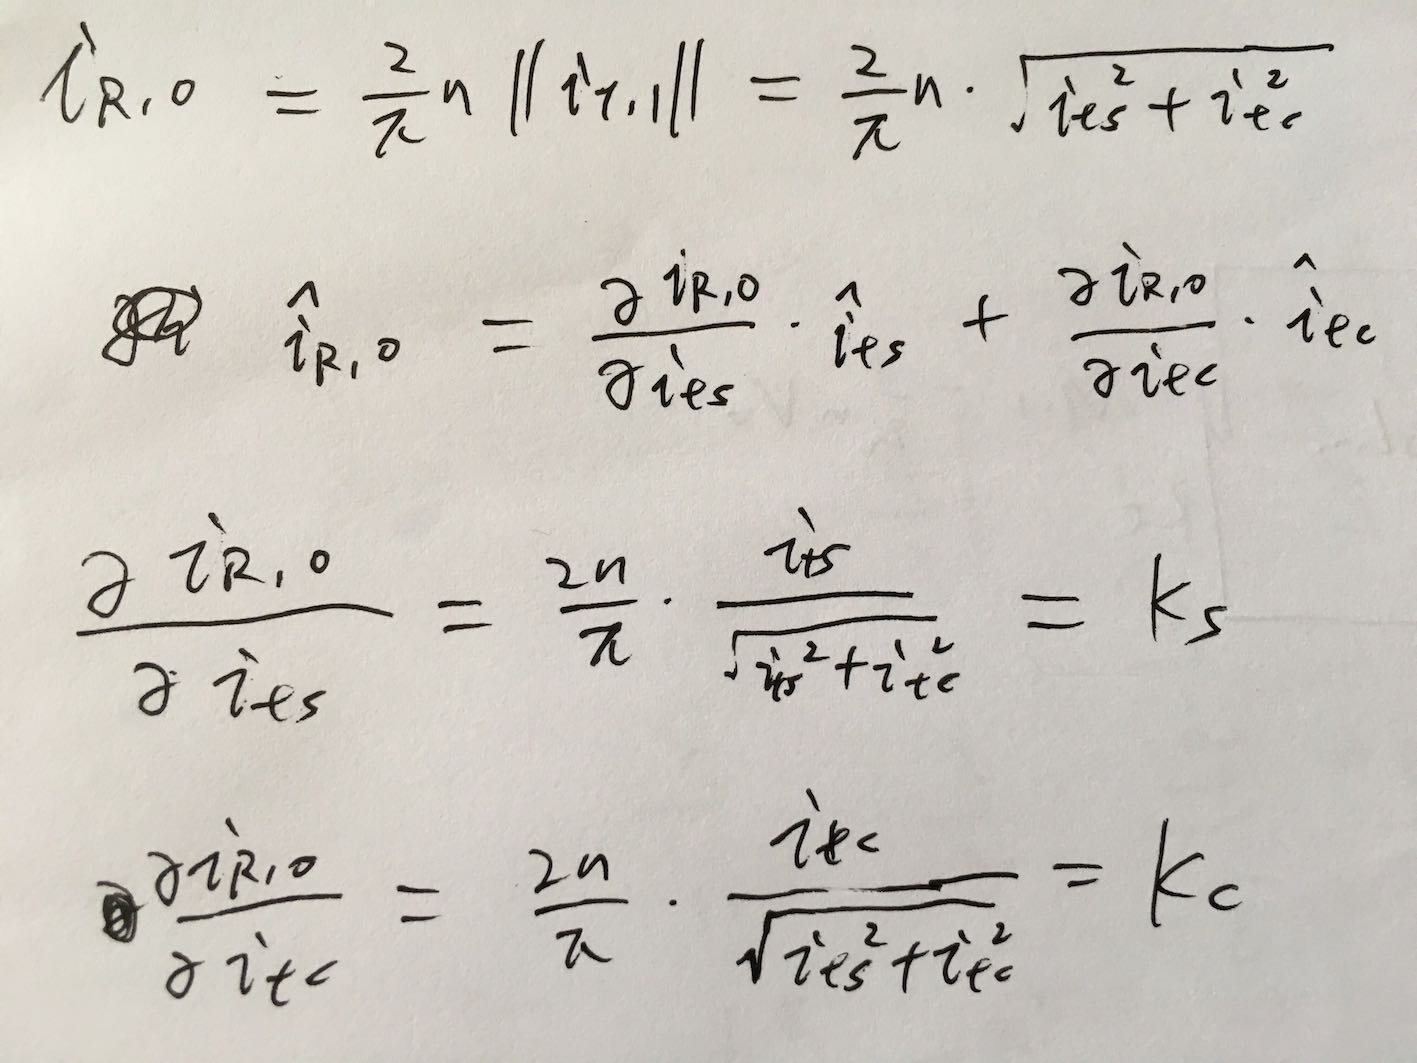 i_{R,0} = \frac{2}{\pi} n \| i_{r,1} \| = \frac{2}{\pi} n \cdot \sqrt{i_{ts}^2 + i_{tc}^2}
\hat{i}_{R,0} = \frac{\partial i_{R,0}}{\partial i_{ts}} \cdot \hat{i}_{ts} + \frac{\partial i_{R,0}}{\partial i_{tc}} \cdot \hat{i}_{tc}
\frac{\partial i_{R,0}}{\partial i_{ts}} = \frac{2n}{\pi} \cdot \frac{i_{ts}}{\sqrt{i_{ts}^2 + i_{tc}^2}} = K_s
\frac{\partial i_{R,0}}{\partial i_{tc}} = \frac{2n}{\pi} \cdot \frac{i_{tc}}{\sqrt{i_{ts}^2 + i_{tc}^2}} = K_c